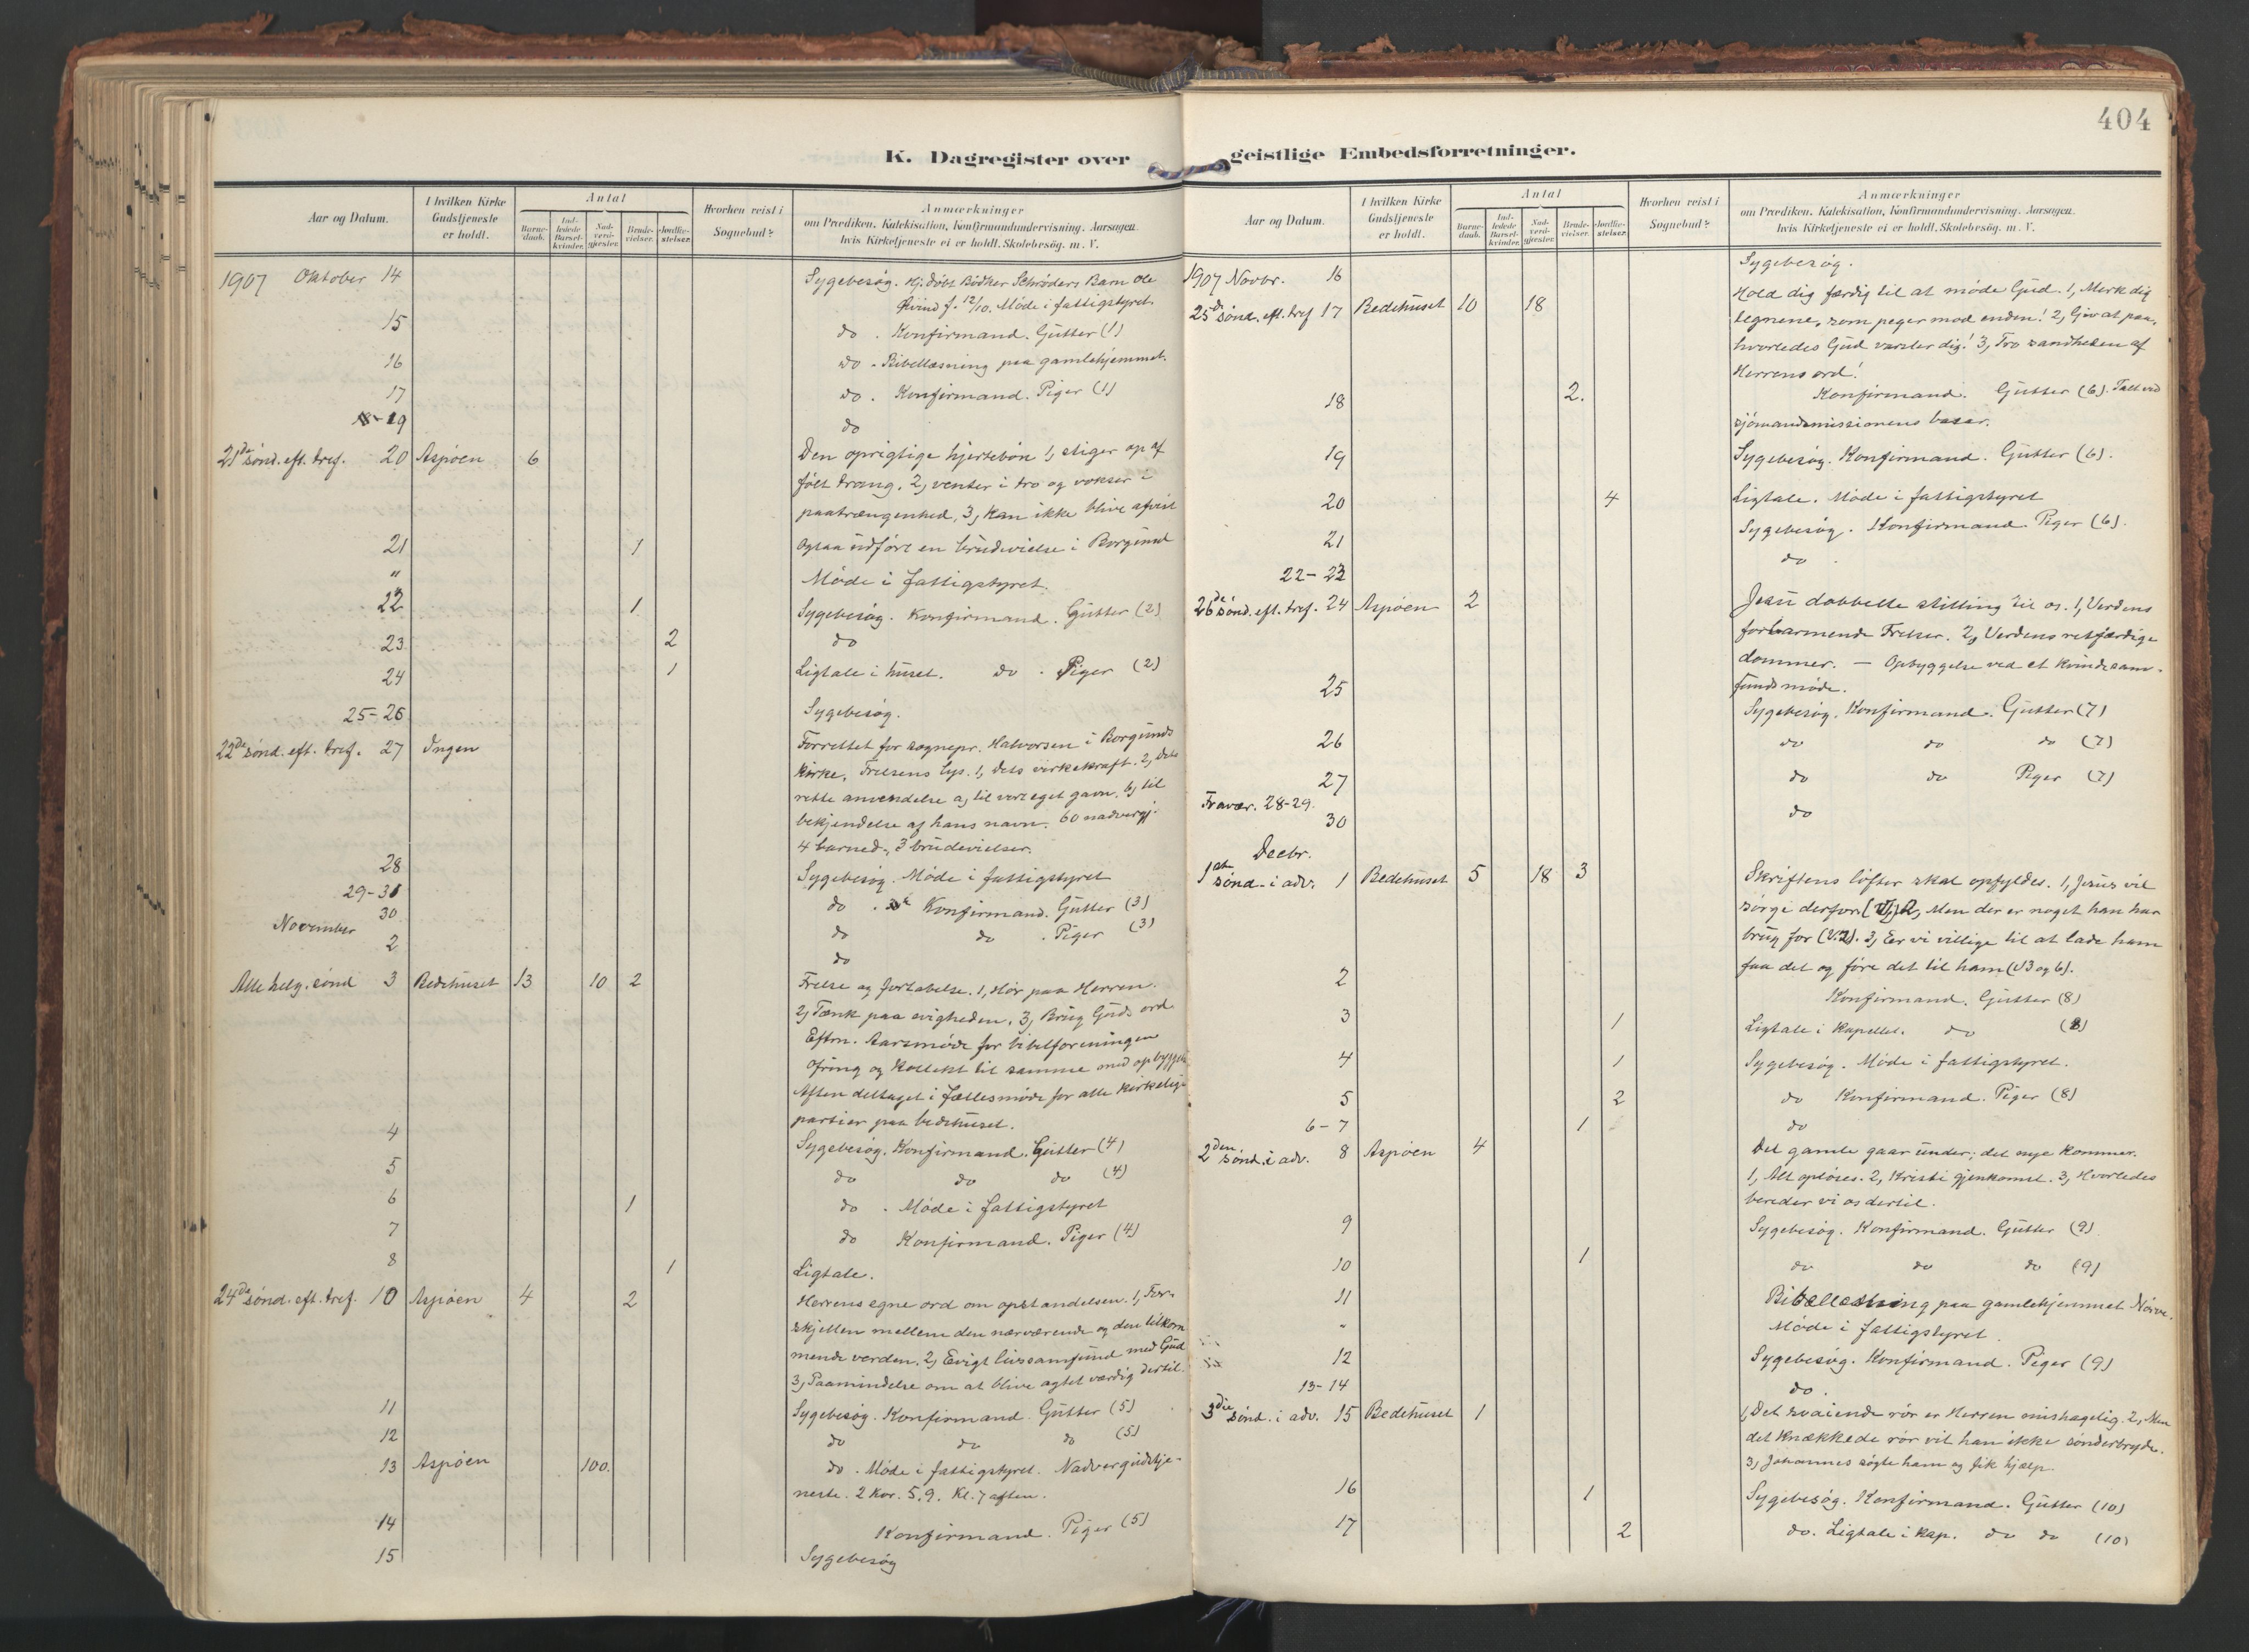 404
K. Dagregister over geistlige Embedsforretninger.
Aar og Datum.
I hvilken Kirke Gudstjeneste er holdt.
Antal
Barnedaab.
Indledede Barselkvinder.
Nadverdgjester.
Brudevielser.
Jordfæstelser.
Hvorhen reist i Sognebud?
Anmærkninger
om Prædiken, Katekisation, Konfirmandundervisning. Aarsagen,
hvis Kirketjeneste ei er holdt. Skolebesög. m. V.
1907 Oktober 14 Sygebesøg. Hj. døbt Bödker Schrøders Barn Ole
Øivind f. 12/10. Møde i fattigstyret.
15 do. Konfirmand. Gutter (1)
16 do. Bibellæsning paa gamlehjemmet.
17 do. Konfirmand. Piger (1)
18-19 do
21de sønd. eft. tref. 20 Aspøen 6 Den oprigtige hjertebøn 1, stiger op af
følt trang. 2, venter i tro og vokser i
paatrængenhed, 3, kan ikke blive afvist
21 1 Ogsaa udført en brudevielse i Borgund
" Møde i fattigstyret.
22 1 Sygebesøg. Konfirmand. Gutter (2)
23 2 do
24 1 Ligtale i huset. do. Piger (2)
25-26 Sygebesøg.
22de sønd. eft. tref. 27 Ingen Forrettet for sognepr. Halvorsen i Borgunds
kirke. Frelsens lys. 1, dets virkekraft. 2, Dets
rette anvendelse a, til vort eget gavn. b, til
bekjendelse af hans navn. 60 nadvergj.
4 barned., 3 brudevielser.
28 Sygebesøg. Møde i fattigstyret
29-30 do. Konfirmand. Gutter (3)
30 do do. Piger (3)
November
2 do
Alle helg. sønd 3 Bedehuset 13 10 2 Frelse og fortabelse. 1, Hør paa Herren.
2, Tænk paa evigheden. 3, Brug Guds ord
Eftm. Aarsmøde for bibelforeningen
Ofring og kollekt til samme med opbyggelse
Aften deltaget i fællesmøde for alle kirkelige
partier paa bedehuset.
4 Sygebesøg. Konfirmand. Gutter (4)
5 do do do (4)
6 1 do. Møde i fattigstyret
7 do Konfirmand. Piger (4)
8 1 Ligtale.
24de sønd. eft. tref. 10 Aspøen 4 2 Herrens egne ord om opstandelsen. 1, For-
skjellen mellem den nærværende og den tilkom
mende verden. 2, Evigt livssamfund med Gud
3, Paamindelse om at blive agtet værdig dertil.
11 Sygebesøg. Konfirmand. Gutter (5)
12 do do do (5)
13 Aspøen 100. do. Møde i fattigstyret. Nadvergudstje-
neste. 2 Kor. 5.9. Kl. 7 aften.
14 Konfirmand. Piger (5)
15 Sygebesøg
Aar og Datum.
I hvilken Kirke Gudstjeneste er holdt.
Antal
Barnedaab.
Indledede Barselkvinder.
Nadverdgjester.
Brudevielser.
Jordfæstelser.
Hvorhen reist i Sognebud?
Anmærkninger
om Prædiken, Katekisation, Konfirmandundervisning. Aarsagen,
hvis Kirketjeneste ei er holdt. Skolebesög. m. V.
1907 Novbr. 16 Sygebesøg.
25de sønd. eft. tref 17 Bedehuset 10 18 Hold dig færdig til at møde Gud. 1, Merk dig
tegnene, som peger mod enden! 2, Giv at paa,
hvorledes Gud varsler dig! 3, Tro sandheden af
Herrens ord!
18 2. Konfirmand. Gutter (6). Talt ved
sjömandsmissionens basar.
19 Sygebesøg. Konfirmand. Gutter (6).
20 4 Ligtale. Møde i fattigstyret
21 Sygebesøg. Konfirmand. Piger (6).
22-23 do.
26de sønd. eft. tref. 24 Aspøen 2 Jesu dobbelte stilling til os. 1, Verdens
forbarmende Frelser. 2, Verdens retfærdige
dommer. — Opbyggelse ved et kvindesam-
fundsmøde.
25 Sygebesøg. Konfirmand. Gutter (7)
26 do do do (7)
27 do do Piger (7)
Fravær. 28-29.
30 do
Decbr.
1ste sønd. i adv. 1 Bedehuset 5 18 3 Skriftens løfter skal opfyldes. 1, Jesus vil
sørge derfor 2, Men der er noget han har
brug for (V.2). 3, Er vi villige til at lade ham
faa det og føre det til ham (V3 og 6).
2 Konfirmand. Gutter (8)
3 1 Ligtale i kapellet. do (8)
4 1 Sygebesøg. Møde i fattigstyret.
5 2 do Konfirmand. Piger (8)
6-7 1 do
2den sønd. i adv. 8 Aspøen 4 Det gamle gaar under; det nye kommer.
1, Alt opløses. 2, Kristi gjenkomst. 3, Hvorledes
bereder vi os dertil.
9 Sygebesøg. Konfirmand. Gutter (9)
10 1 do do do (9)
11 Bibellæsning paa gamlehjemmet Nørve.
" Møde i fattigstyret.
12 Sygebesøg. Konfirmand. Piger (9)
13-14 do.
3die sønd. i adv. 15 Bedehuset 1 1, Det svaiende rør er Herren mishagelig. 2, Men
det knækkede rør vil han ikke sønderbryde.
3, Johannes søgte ham og fik hjælp.
16 1 Sygebesøg. Konfirmand. Gutter (10)
17 2 do. Ligtale i kap. do do (10)